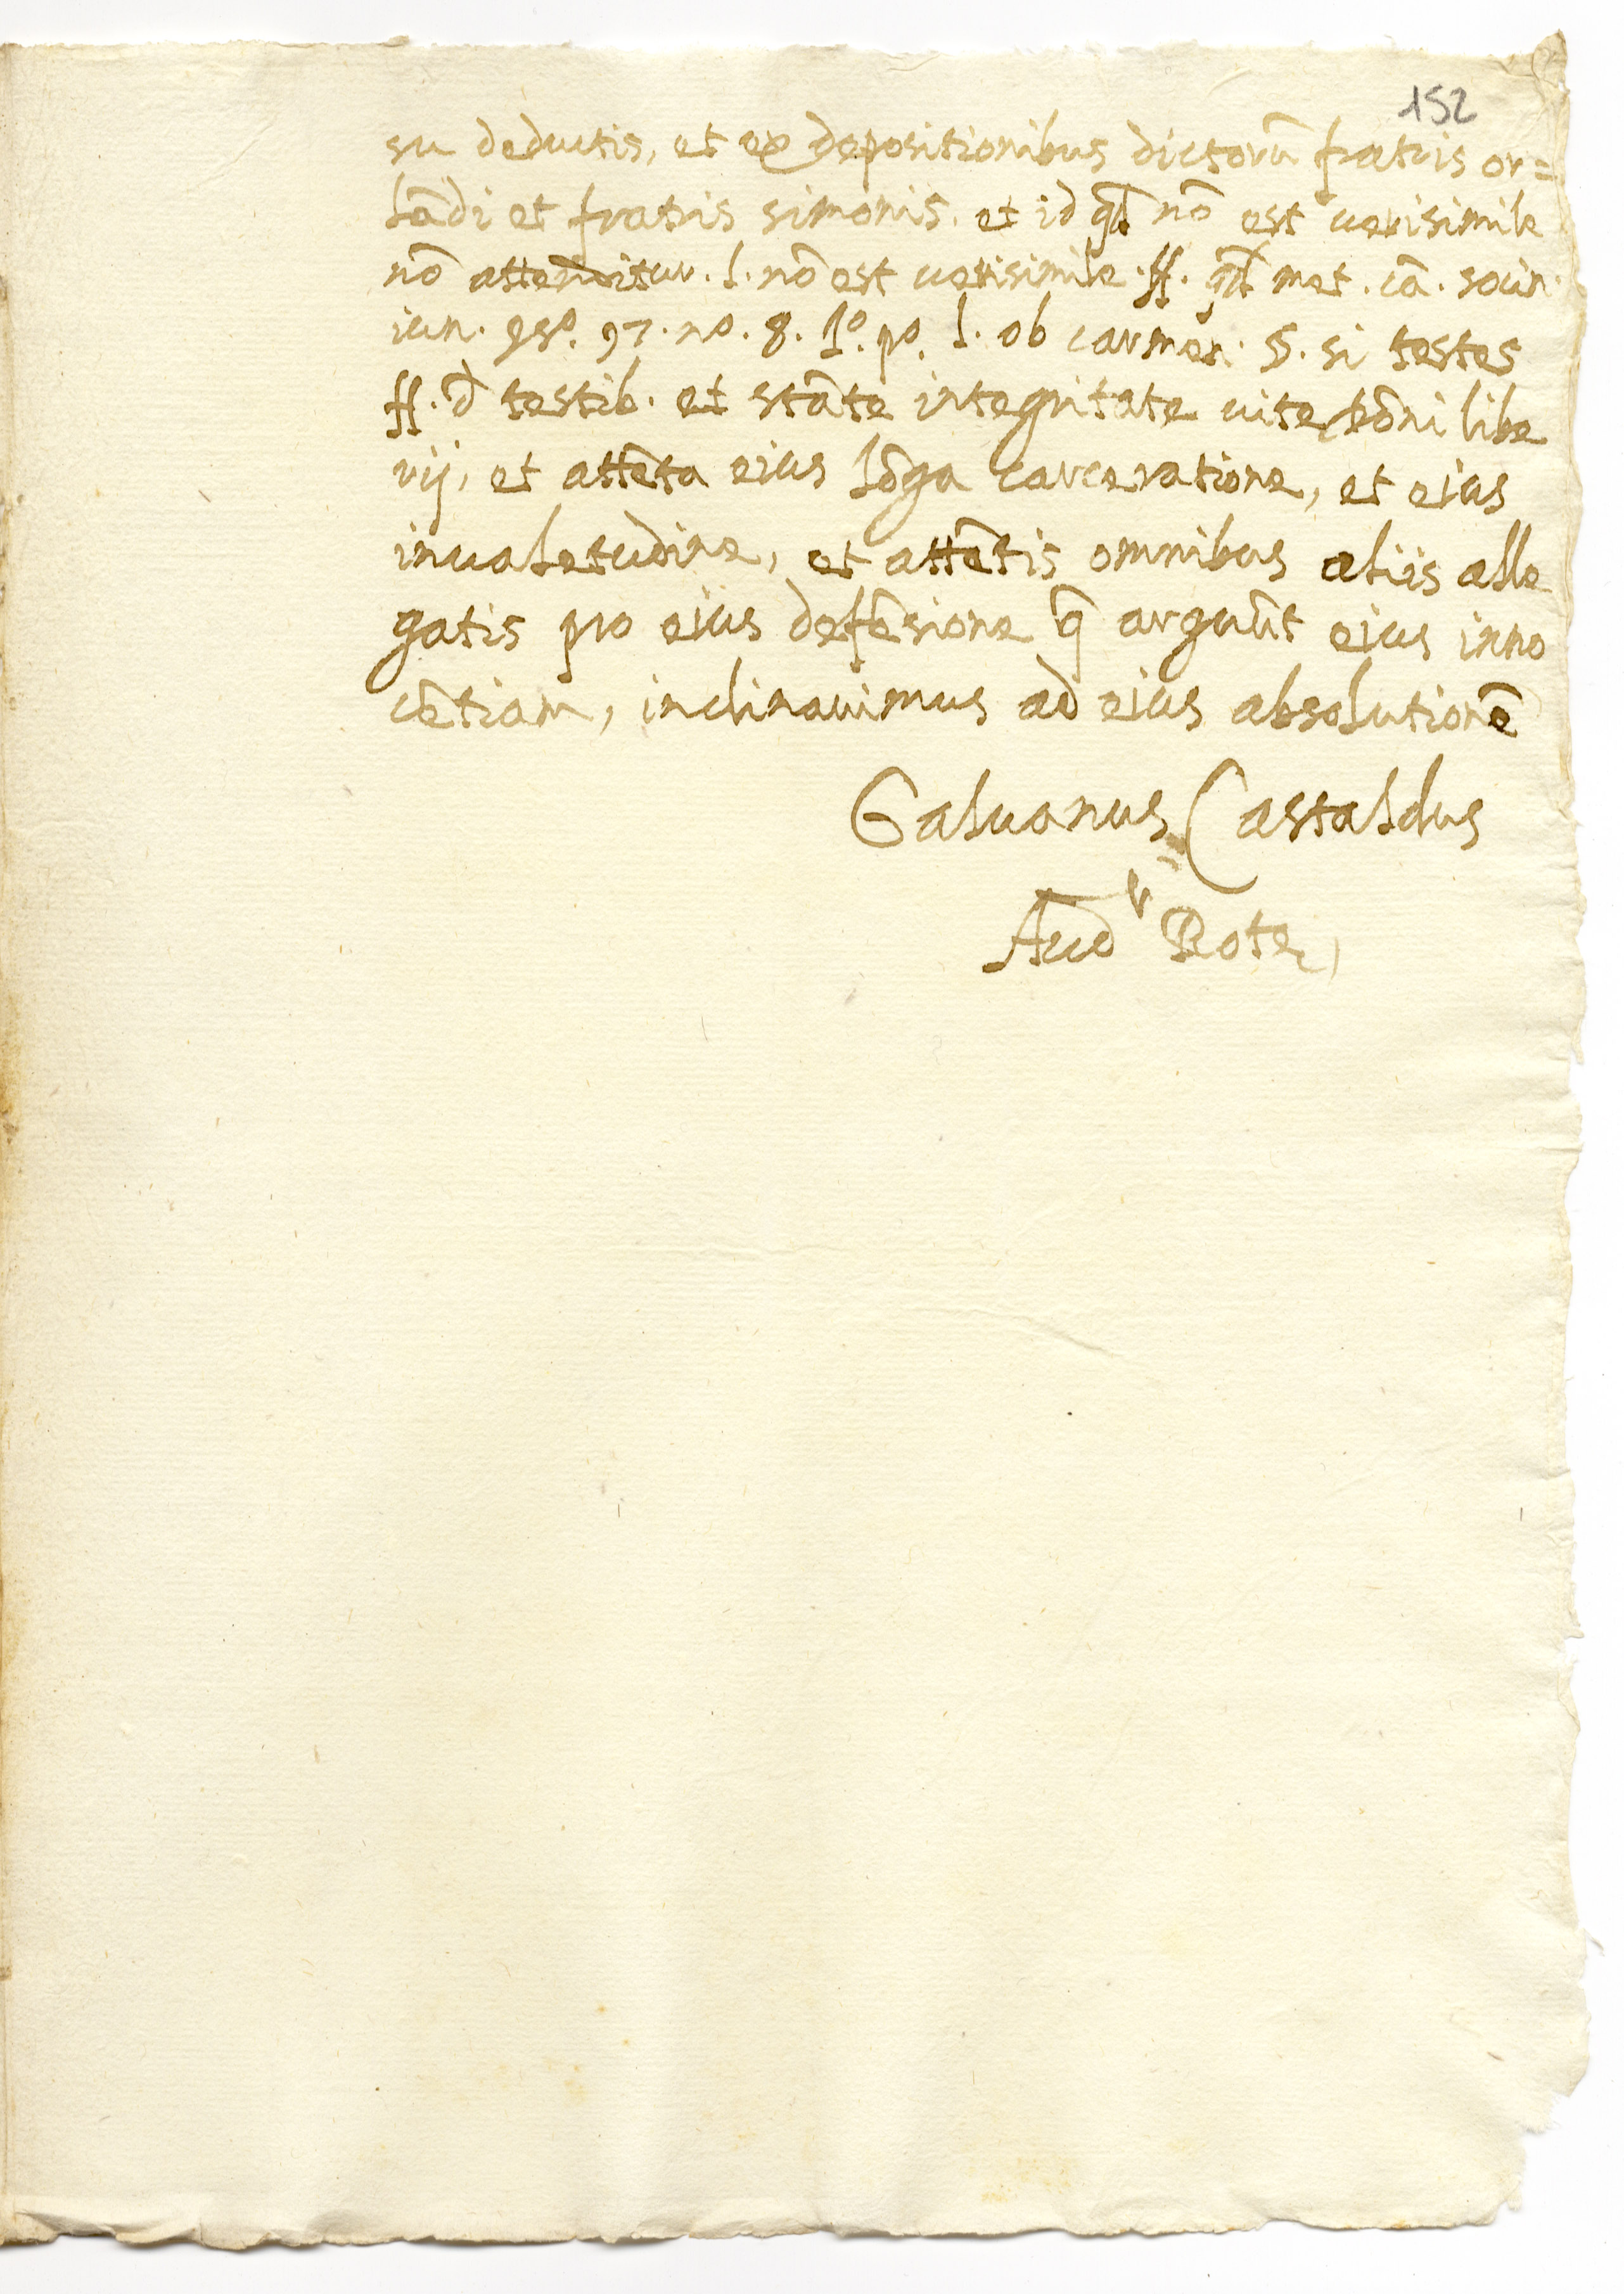 152
su deductis, et ex depositionibus dictorū fratris or=
lādi et fratris simonis. et id qd nō est uerisimile
nō attenditur. l. nō est uerisimile. ff. qd met. cā. socin.
iun. 97. no. 8. po. l. ob carmen. §. si testes
ff. d̄ testib. et stāte integritate uite dōni libe
rij, et attēta eius lōga carceratione, et eius
inualetudine, et attētis omnibus aliis alle
gatis pro eius defēsione q̄ arguūt eius inno
cētiam, inclinauimus ad eius absolutionē
Galuanus Castaldus
Aud^r Rotę,